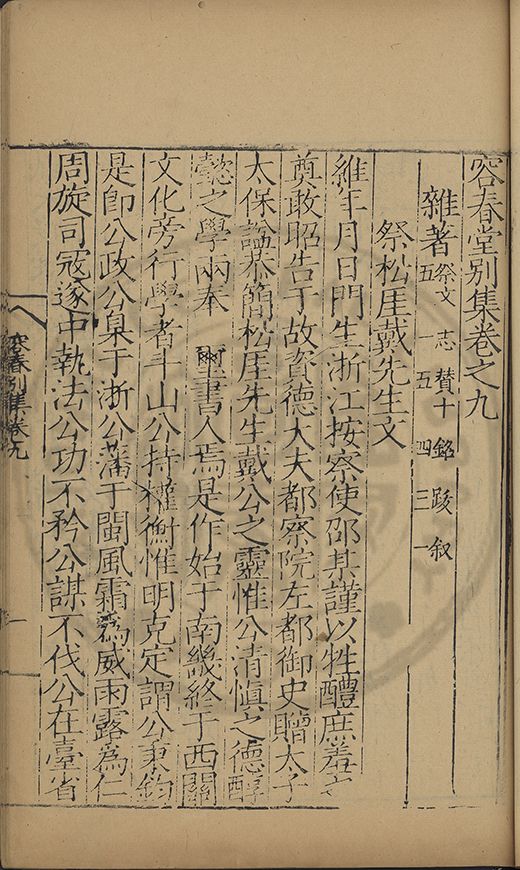 容春堂別集卷之九
雜著 祭文五 志一 贊十五 銘四 跋三 叙一
祭松厓戴先生文
維年月日門生浙江按察使邵某謹以牲醴庶羞之
奠敢昭告于故資德大夫都察院左都御史贈太子
太保諡恭簡松厓先生戴公之靈惟公清慎之德醇
懿之學兩奉 璽書人焉是作始于南畿終于西關
文化旁行學者斗山公持權衡惟明克定謂公秉鈞
是卽公政公臬于浙公藩于閩風霜爲威雨露爲仁
周旋司寇遂中執法公功不矜公謀不伐公在臺省
容春別集卷九
一